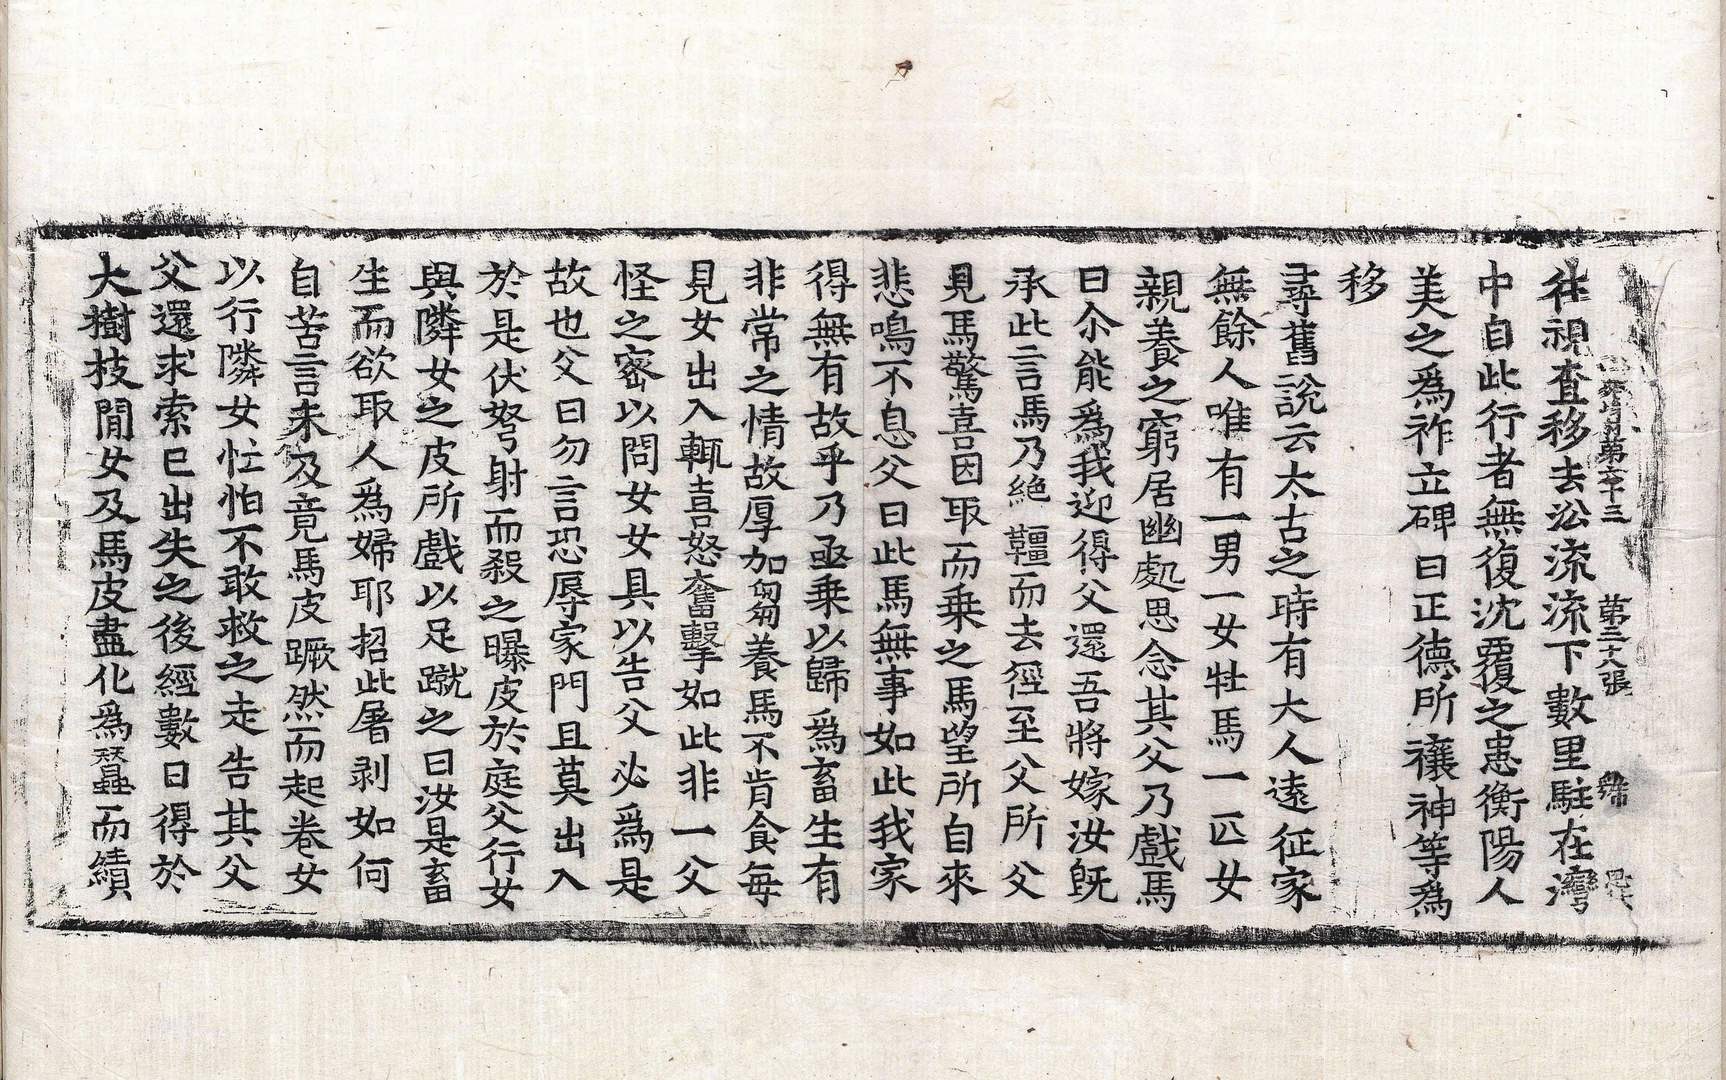 第六十三 第三十八張
往視查移去沿流流下數里駐在灣
中自此行者無復沈覆之患衡陽人
美之為祚立碑曰正德所禳神等為
移
尋舊說云太古之時有大人遠征家
無餘人唯有一男一女牡馬一匹女
親養之窮居幽處思念其父乃戲馬
曰尒能為我迎得父還吾將嫁汝旣
承此言馬乃絶韁而去徑至父所父
見馬驚喜因取而乗之馬望所自來
悲鳴不息父曰此馬無事如此我家
得無有故乎乃亟乗以歸為畜生有
非常之情故厚加芻養馬不肯食每
見女出入輒喜怒奮擊如此非一父
怪之密以問女女具以告父必為是
故也父曰勿言恐辱家門且莫出入
於是伏弩射而殺之曝皮於庭父行女
與隣女之皮所戲以足蹴之曰汝是畜
生而欲取人為婦耶招此屠剥如何
自苦言未及竟馬皮蹶然而起卷女
以行隣女忙怕不敢救之走告其父
父還求索已出失之後經數日得於
大樹枝間女及馬皮盡化為蠶而績